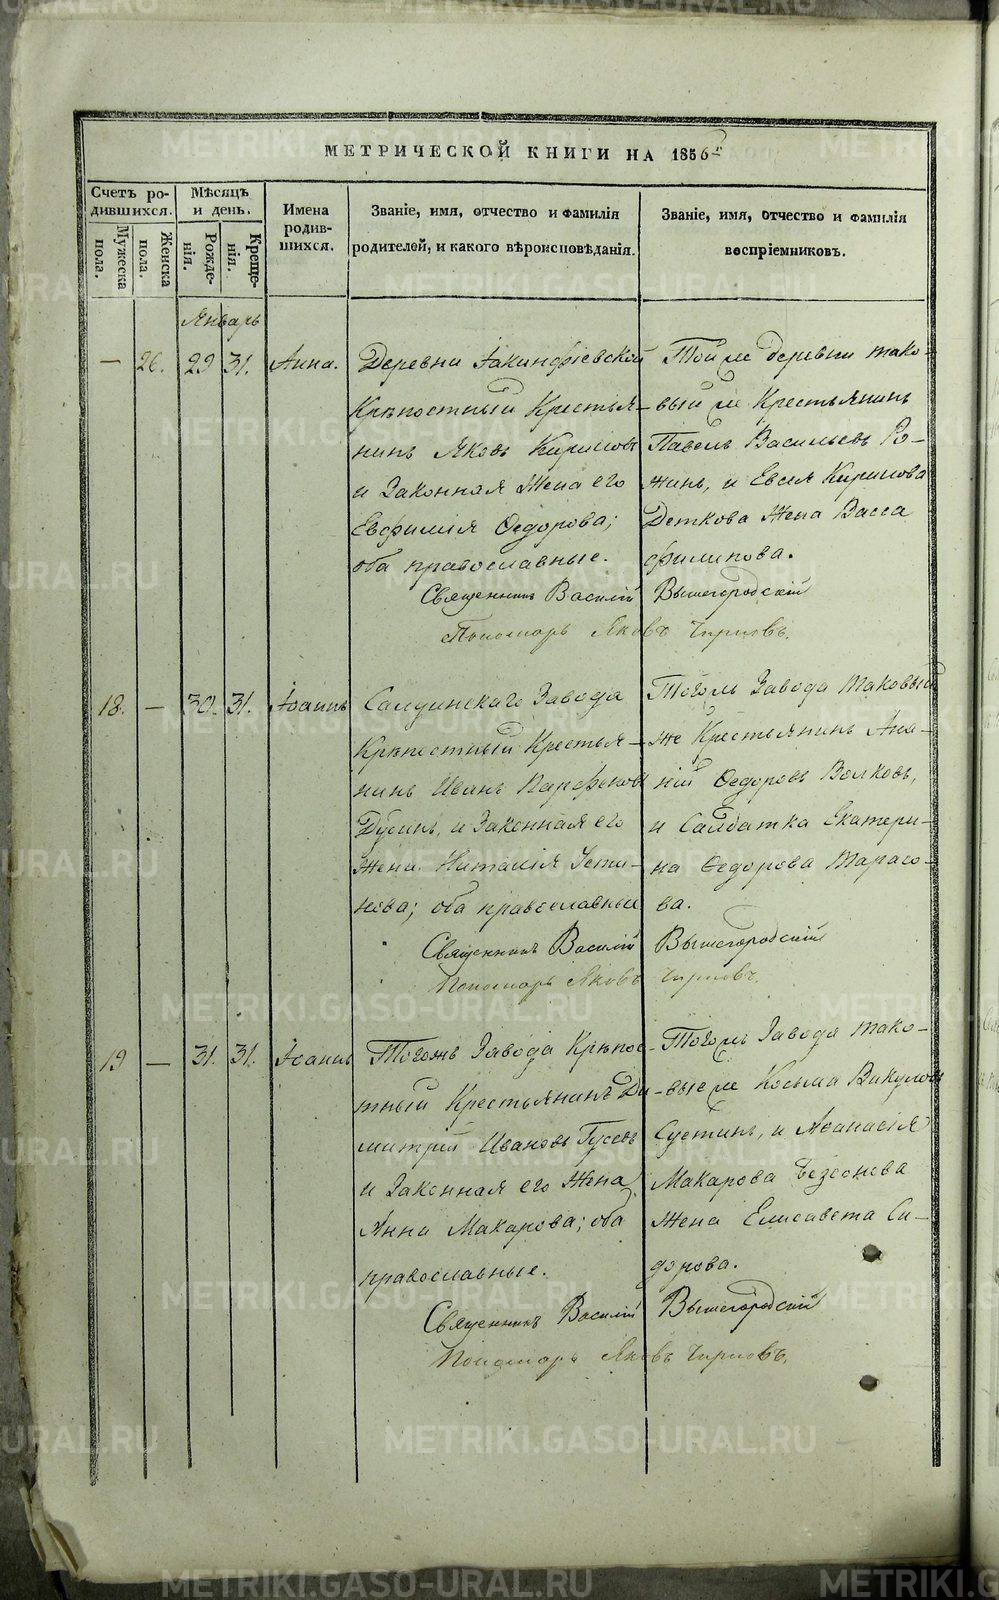 МЕТРИЧЕСКОЙ КНИГИ НА 1856 г
Счетъ ро-
дившихся.
Мужеска
пола.
Женска
пола.
Мѣсяцъ
и день.
Рожде-
нія.
Креще-
нія.
Имена
родив-
шихся.
Званіе, имя, отчество и фамилія
родителей, и какого вѣроисповѣданія.
Званіе, имя, отчество и фамилія
воспріемниковъ.
Январь
— 26. 29 31. Анна.
Деревни Іакинфіевской
Крѣпостный Крестья-
нинъ Яковъ Кириловъ
и Законная Жена его
Евфимія Ѳедорова;
оба православные.
Той же деревни тако-
вый же Крестьянинъ
Павелъ Васильевъ Ро-
жинъ, и Евсея Кирилова
Деткова Жена Васса
Филипова.
Священникъ Василій Вышегородскій
Пономарь Яковъ Чирковъ.
18. — 30. 31. Іоаннъ
Салдинскаго Завода
Крѣпостный Крестья-
нинъ Иванъ Парфеновъ
Дусинъ, и Законная его
Жена Наталія Усти-
нова; оба православные
Тогожъ Завода таковый
же Крестьянинъ Ана-
ній Ѳедоровъ Волковъ,
и Салдатка Екатери-
на Ѳедорова Тарасо-
ва.
Священникъ Василій Вышегородскій
Пономарь Яковъ Чирковъ.
19 — 31. 31. Іоаннъ
Тогожъ Завода Крѣпос-
тный Крестьянинъ Ди-
митрій Ивановъ Гусевъ
и Законная его Жена
Анна Макарова; оба
православные.
Тогожъ Завода тако-
вые же Косьма Викуловъ
Сустинъ, и Аѳанасія
Макарова Безсонова
Жена Елисавета Си-
дорова.
Священникъ Василій Вышегородскій
Пономарь Яковъ Чирковъ.
METRIKI.GASO-URAL.RU